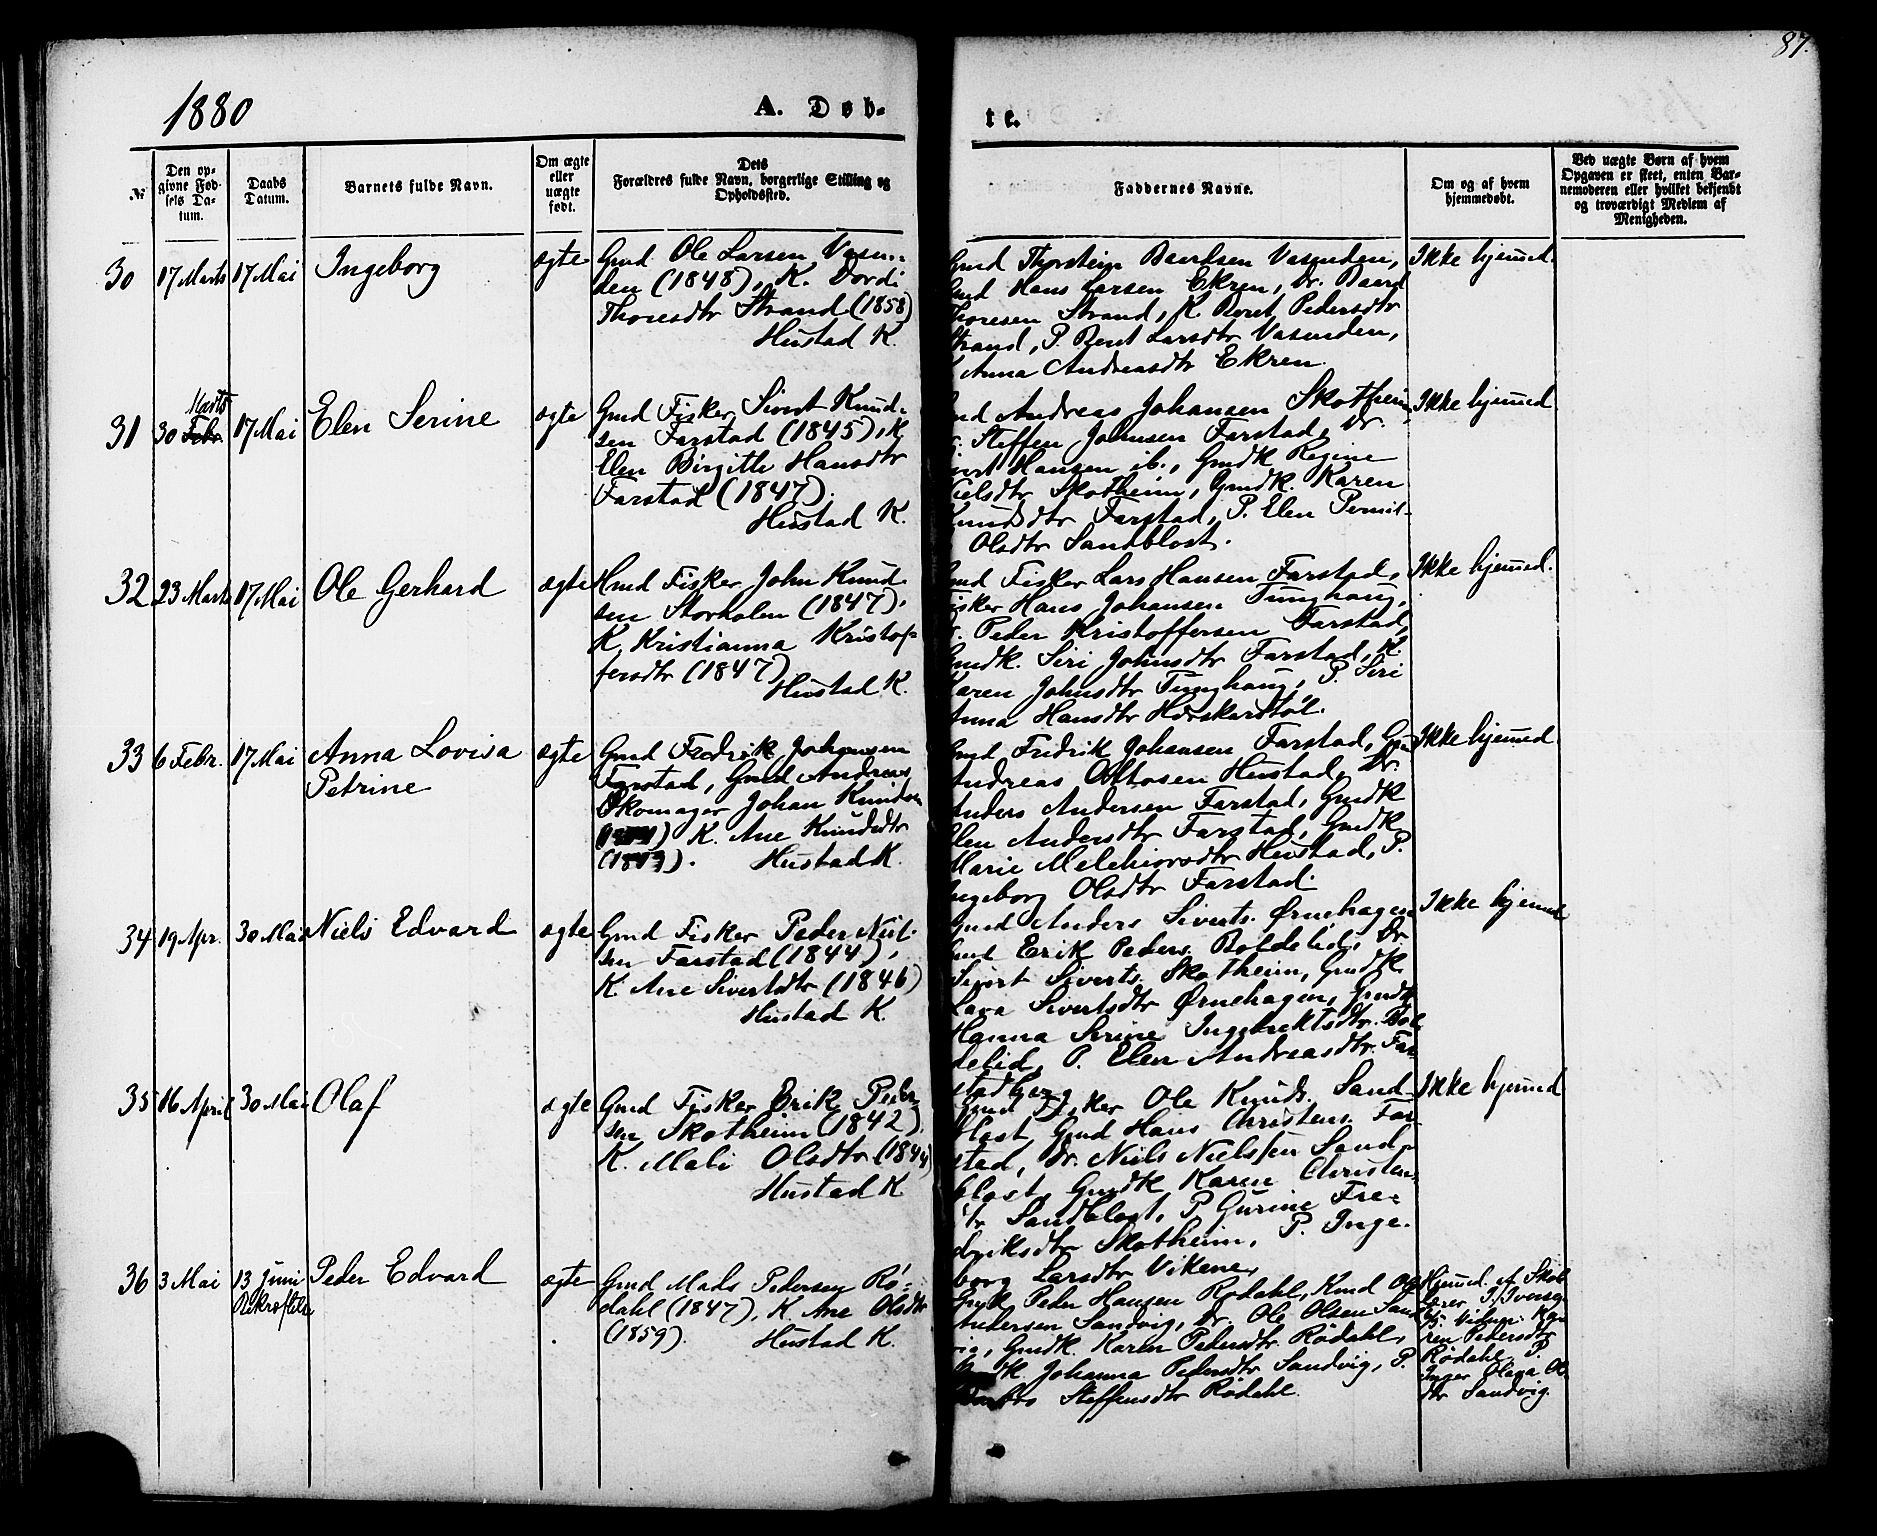 87.
1880
A. Døb-
te.
№
Den op-
givne Fød-
sels Da-
tum.
Daabs
Datum.
Barnets fulde Navn.
Om ægte
eller
uægte
født.
Dets
Forældres fulde Navn, borgerlige Stilling og
Opholdssted.
Faddernes Navne.
Om og af hvem
hjemmedøbt.
Ved uægte Børn af hvem
Opgaven er skeet, enten Bar-
nemoderen eller hvilket bekjendt
og troværdigt Medlem af
Menigheden.
30
17 Marts
17 Mai
Ingeborg
ægte
Gmd Ole Larsen Vasen-
den (1848), K. Dordi
Thoresdtr Strand (1858)
Hustad K.
Gmd Thorstein Baardsen Vasenden,
Gmd Hans Larsen Ekren, Dr. Baard
Thoresen Strand, K. Beret Pedersdtr
Strand, P. Beret Larsdtr Vasenden,
K Anna Andreasdtr Ekren.
Ikke hjemmed.
31
Marts
30 Febr.
17 Mai
Elen Serine
ægte
Gmd Fisker Sivert Knud-
sen Farstad (1845), K
Elen Birgitte Hansdtr
Farstad (1847).
Hustad K.
Gmd Andreas Johansen Skotheim,
Dr. Steffen Johnsen Farstad, Dr.
Sivert Hansen ib., Gmdk Regine
Nielsdtr Skotheim, Gmdk. Karen
Knudsdtr Farstad, P. Elen Pernil-
Olsdtr Sandblost.
Ikke hjemmed
32
23 Marts
17 Mai
Ole Gerhard
ægte
Hmd Fisker John Knud-
sen Storholen (1847).
K. Kristianna Kristof-
fersdtr (1847)
Hustad K.
Gmd Fisker Lars Hansen Farstad,
Fisker Hans Johansen Tunghaug,
Dr. Peder Kristoffersen Farstad,
Gmdk. Siri Johnsdtr Farstad, K.
Karen Johnsdtr Tunghaug, P. Siri
Anna Hansdtr Horskarstøl.
Ikke hjemmed.
33
6 Febr.
17 Mai
Anna Lovisa
Petrine
ægte
Gmd Fredrik Johansen
Farstad, Gmd Andreas
Skomager Johan Knudsen
K. Ane Knudsdtr
Hustad K.
Gmd Fredrik Johansen Farstad, Gmd
Andreas Ottosen Hustad, Dr.
Anders Andersen Farstad, Gmdk
Elen Andersdtr Farstad, Gmdk
Marie Melchiorsdtr Hustad, P.
Ingeborg Olsdtr Farstad.
Ikke hjemmed.
34
19 Apr.
30 Mai
Niels Edvard
ægte
Gmd Fisker Peder Niel-
sen Farstad (1844),
K. Ane Sivertsdtr (1846)
Hustad K.
Gmd Anders Siverts. Ørnehagen
Gmd Erik Peders. Boldelid, Dr
Sivert Siverts. Skotheim, Gmdk
Lava Sivertsdtr Ørnehagen, Gmdk
Hanna Serine Ingebrektsdtr. Bol-
delid, P. Elen Andreasdtr. Far-
stad
Ikke hjemmed
35
16 April
30 Mai
Olaf
ægte
Gmd Fisker Erik Peder-
sen Skotheim (1842),
K. Mali Olsdtr (1844)
Hustad K
Gmd Fisker Ole Knuds. Sand-
blost, Gmd Hans Christens. Far-
stad, Dr. Niels Nielssen Sand-
blost, Gmdk Karen Christens-
dtr Sandblost, P Gurine Fre-
driksdtr Skotheim, P. Inge-
borg Larsdtr Vikene
Ikke hjemmed
36
3 Mai
13 Juni
Bekræftelse
Peder Edvard
ægte
Gmd Mads Pedersen Rø-
dahl (1847), K. Ane Olsdtr
(1859).
Hustad K.
Gmdk Peder Hansen Rødahl, Kmd Ole
Andersen Sandvig, Dr. Ole Olsen Sand-
vig, Gmdk. Karen Pedersdtr. Rødahl,
Gmdk Johanna Pedersdtr Sandvig, P.
Steffensdtr Rødahl.
Hjemmed. af Skol-
lærer I. Iversen
Vidne: Ka-
ren Pedersdtr
Rødahl, P.
Inger Olava Ol-
dtr Sandvig.